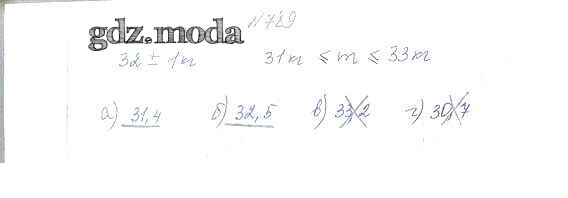 №789
gdz.moda
32 ± 1м 31м ≤ m ≤ 33м
а) 31,4 б) 32,5 в) 33,2 г) 30,7